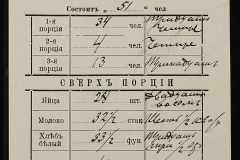 Состоитъ „ 51 „ чел.
1-я порція 34 чел. Тридцать четыре
2-я порція 4 чел. Четыре
3-я порція 13 чел. Тринадцать
СВЕРХЪ ПОРЦІИ
Яйца 28 шт. двадцать восемь
Молоко стак.
Хлѣбъ бѣлый 33½ фун. Тридцать три ½